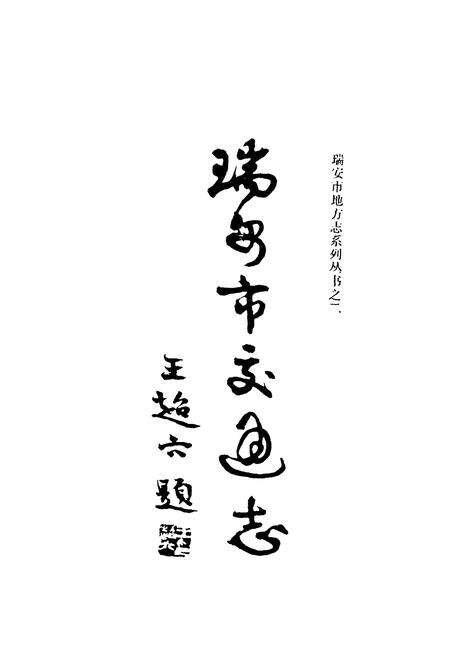 瑞安市地方志系列丛书之二
瑞安市交通志
王超六题